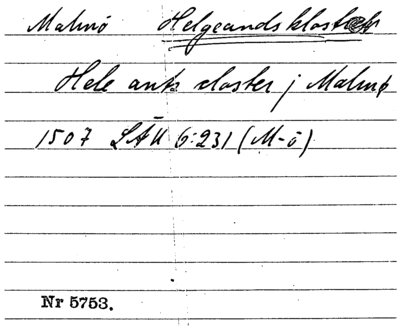 Malmö Helgeandsklostret
Hele antz closter j Malmø
1507 LÄU 6:231 (M-ö)
Nr 5753.